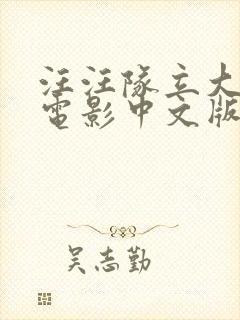 汪汪隊立大
電影中文版
吴志勤